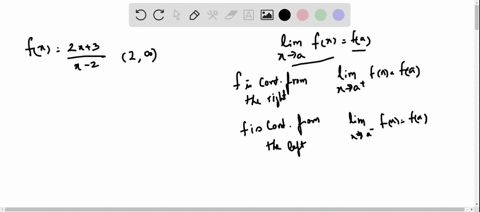 f(x) = (2x+3)/(x-2) (2, ∞)
lim x→a f(x) = f(a)
f is cont. from the right lim x→a⁺ f(x) = f(a)
f is cont. from the left lim x→a⁻ f(x) = f(a)